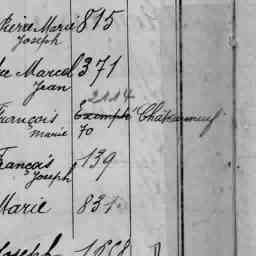 Pierre Marie 815
Joseph
Marcel 371
Jean
2114
François Exempté Châteauneuf
Marie 70
François 139
Joseph
Marie 831
Joseph